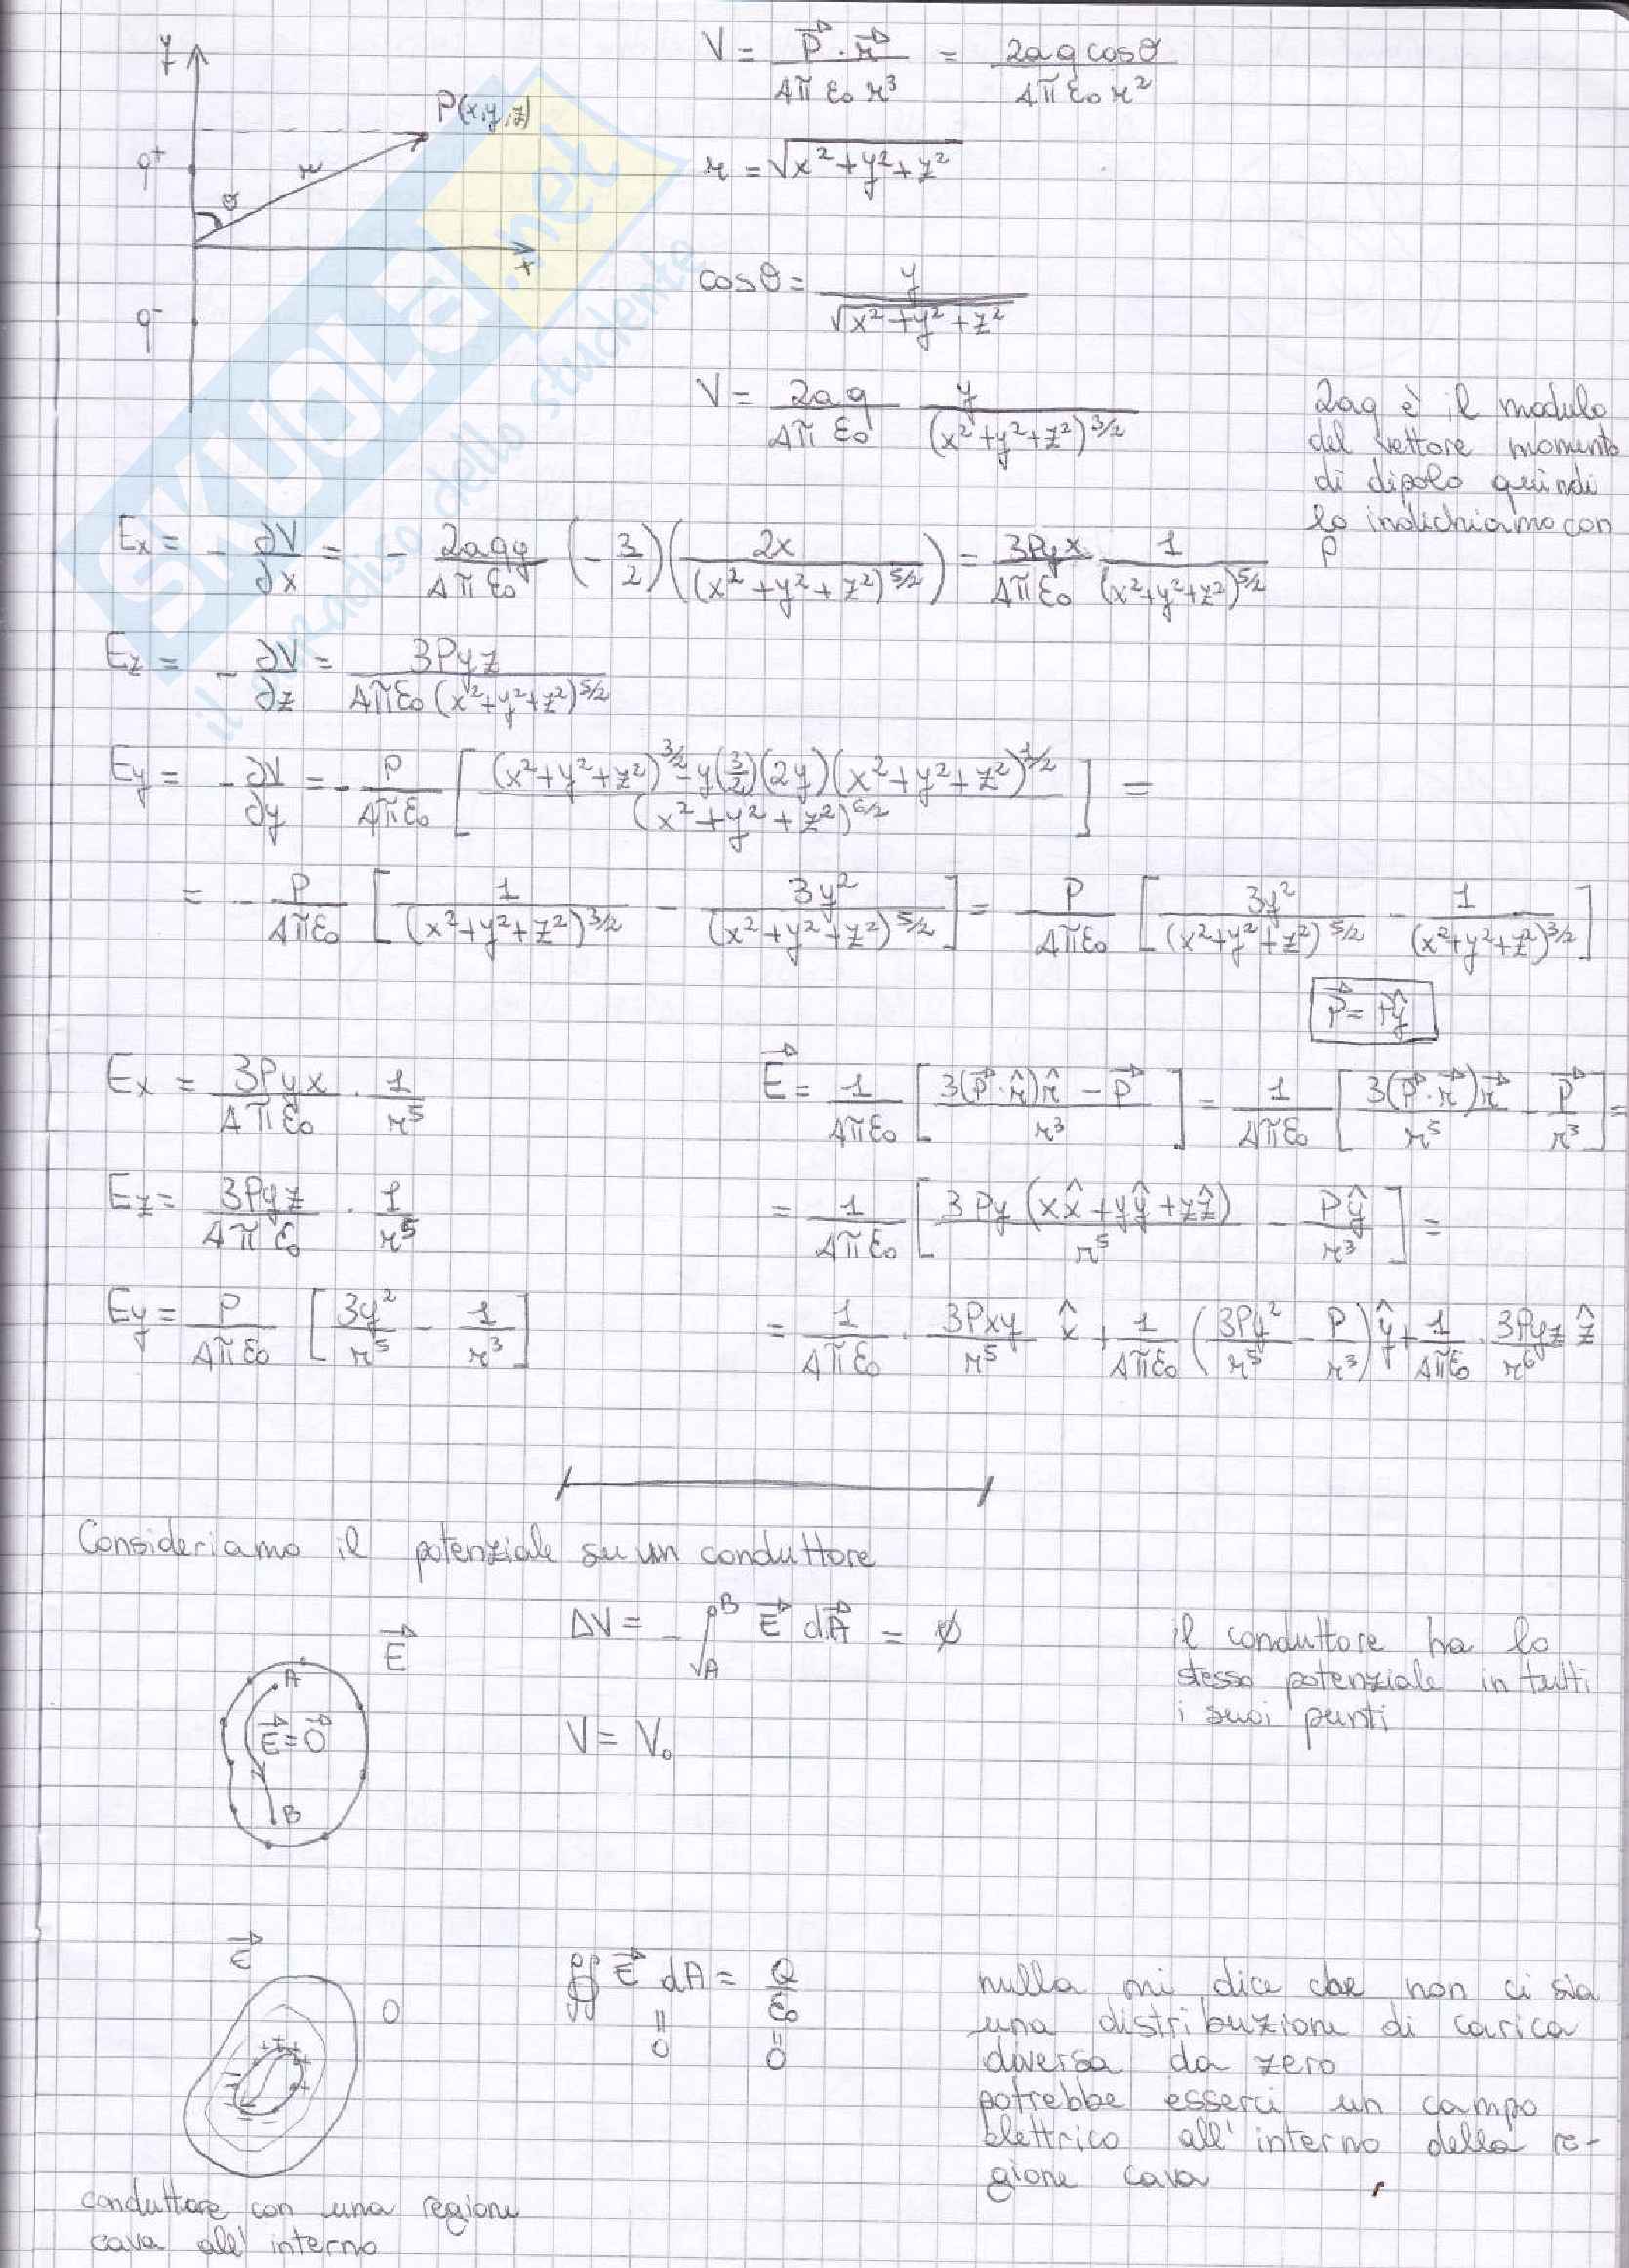 y
V = P⃗ · r⃗ / 4π ε₀ r³ = 2aq cosθ / 4π ε₀ r²
P(x,y,z)
q⁺
r
θ
r = √(x² + y² + z²)
x
cosθ = y / √(x² + y² + z²)
q⁻
SKUOLa.net
il paradiso dello studente
V = 2aq / 4π ε₀ y / (x² + y² + z²)^3/2
2aq è il modulo
del vettore momento
di dipolo quindi
lo indichiamo con
P
Ex = - ∂V/∂x = - 2aqy / 4π ε₀ (-3/2) (2x / (x² + y² + z²)^5/2) = 3Pyx / 4πε₀ 1 / (x² + y² + z²)^5/2
Ez = - ∂V/∂z = 3Pyz / 4πε₀ (x² + y² + z²)^5/2
Ey = - ∂V/∂y = - P / 4πε₀ [ (x² + y² + z²)^3/2 - y(3/2)(2y)(x² + y² + z²)^1/2 / (x² + y² + z²)^6/2 ] =
= - P / 4πε₀ [ 1 / (x² + y² + z²)^3/2 - 3y² / (x² + y² + z²)^5/2 ] = P / 4πε₀ [ 3y² / (x² + y² + z²)^5/2 - 1 / (x² + y² + z²)^3/2 ]
P⃗ = Pŷ
Ex = 3Pyx / 4πε₀ · 1/r⁵
E⃗ = 1 / 4πε₀ [ 3(P⃗ · r̂)r̂ - P⃗ / r³ ] = 1 / 4πε₀ [ 3(P⃗ · r⃗)r⃗ / r⁵ - P⃗ / r³ ] =
Ez = 3Pyz / 4πε₀ · 1/r⁵
= 1 / 4πε₀ [ 3Py (xx̂ + yŷ + zẑ) / r⁵ - Pŷ / r³ ] =
Ey = P / 4πε₀ [ 3y²/r⁵ - 1/r³ ]
= 1 / 4πε₀ · 3Pxy / r⁵ x̂ + 1 / 4πε₀ (3Py²/r⁵ - P/r³) ŷ + 1 / 4πε₀ · 3Pyz / r⁶ ẑ
Consideriamo il potenziale su un conduttore
E⃗
ΔV = - ∫_A^B E⃗ dA⃗ = ∅
il conduttore ha lo
stesso potenziale in tutti
i suoi punti
A
E⃗ = 0⃗
B
V = V₀
E⃗
0
∯ E⃗ dA = Q/ε₀
= =
0 0
nulla mi dice che non ci sia
una distribuzione di carica
diversa da zero
potrebbe esserci un campo
elettrico all'interno della re-
gione cava
conduttore con una regione
cava all'interno